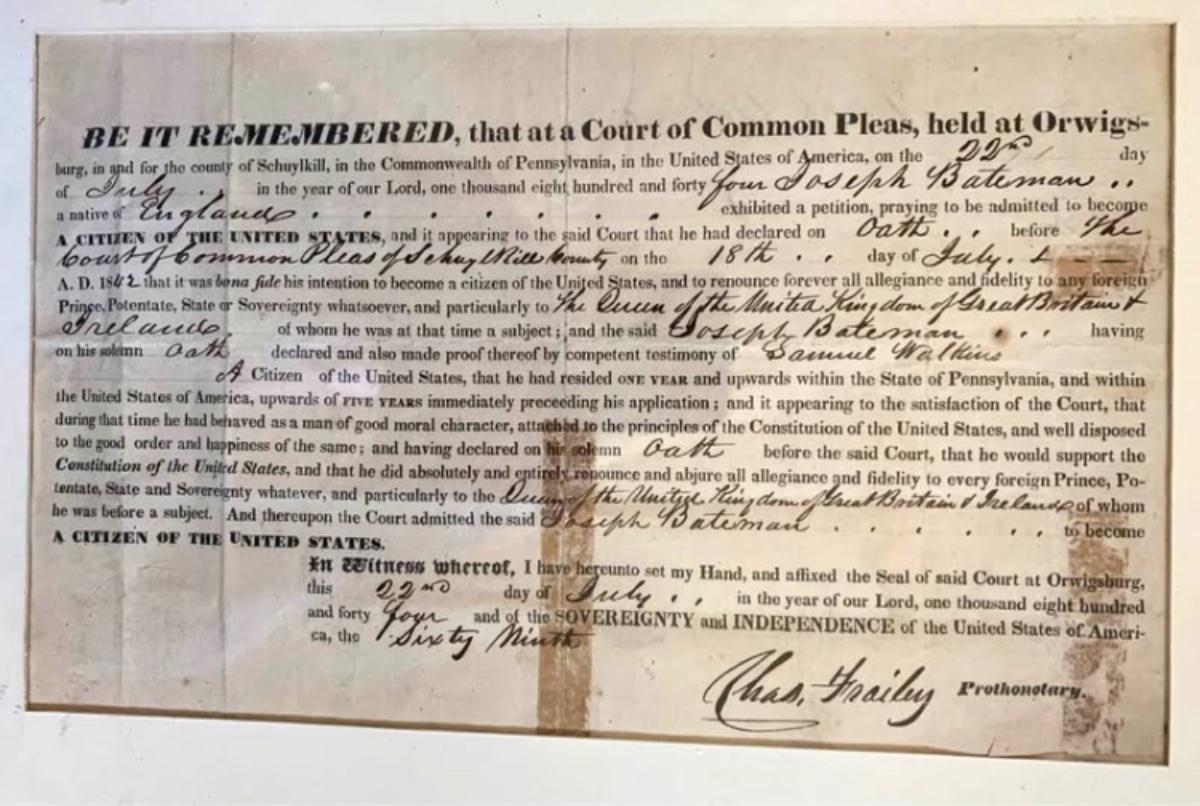 BE IT REMEMBERED, that at a Court of Common Pleas, held at Orwigs-
burg, in and for the county of Schuylkill, in the Commonwealth of Pennsylvania, in the United States of America, on the 22nd day
of July . . in the year of our Lord, one thousand eight hundred and forty four Joseph Bateman . .
a native of England . . . . . . . exhibited a petition, praying to be admitted to become
A CITIZEN OF THE UNITED STATES, and it appearing to the said Court that he had declared on Oath . . before the
Court of Common Pleas of Schuylkill County on the 18th . . day of July .
A. D. 1842 that it was bona fide his intention to become a citizen of the United States, and to renounce forever all allegiance and fidelity to any foreign
Prince, Potentate, State or Sovereignty whatsoever, and particularly to the Queen of the United Kingdom of Great Britain &
Ireland . of whom he was at that time a subject; and the said Joseph Bateman . . . having
on his solemn Oath declared and also made proof thereof by competent testimony of Samuel Watkins
A Citizen of the United States, that he had resided ONE YEAR and upwards within the State of Pennsylvania, and within
the United States of America, upwards of FIVE YEARS immediately preceeding his application; and it appearing to the satisfaction of the Court, that
during that time he had behaved as a man of good moral character, attached to the principles of the Constitution of the United States, and well disposed
to the good order and happiness of the same; and having declared on his solemn Oath before the said Court, that he would support the
Constitution of the United States, and that he did absolutely and entirely renounce and abjure all allegiance and fidelity to every foreign Prince, Po-
tentate, State and Sovereignty whatever, and particularly to the Queen of the United Kingdom of Great Britain & Ireland of whom
he was before a subject. And thereupon the Court admitted the said Joseph Bateman . . . . . . to become
A CITIZEN OF THE UNITED STATES.
In Witness whereof, I have hereunto set my Hand, and affixed the Seal of said Court at Orwigsburg,
this 22nd day of July . . in the year of our Lord, one thousand eight hundred
and forty four and of the SOVEREIGNTY and INDEPENDENCE of the United States of Ameri-
ca, the Sixty Ninth
Chas. Frailey Prothonotary.